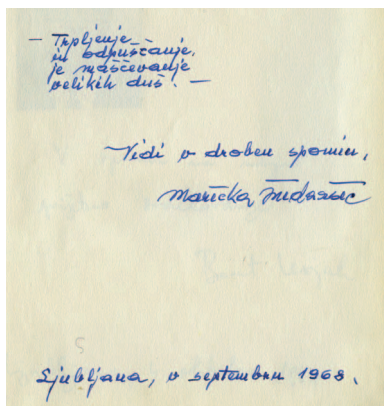 — Trpljenje
in odpuščanje,
je maščevanje
velikih duš. —
Vidi v droben spomin,
Marička
Ljubljana, v septembru 1968.